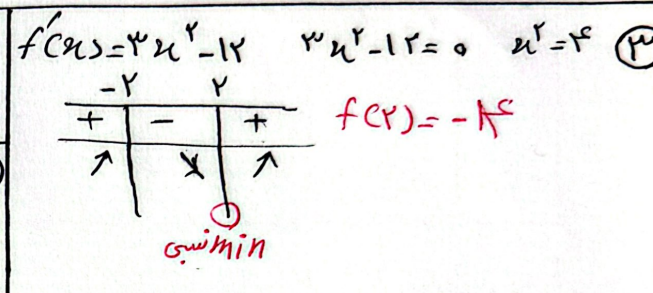 f'(x)=۳x²-۱۲   ۳x²-۱۲=۰   x²=۴   ۳
-۲   ۲
+ - +   f(۲)=-۱۴
↗ ↘ ↗
min نسبی